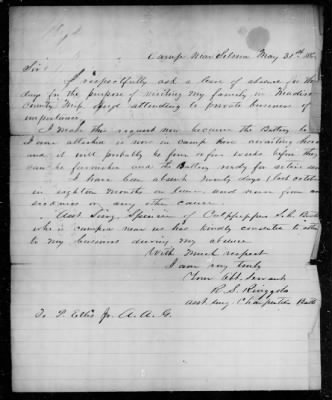 Camp Near Selma May 31st 186
Sir
I respectfully ask a leave of absence for
days for the purpose of visiting my family in Madison
County Miss and attending to private business of
importance.
I make this request now because the Battery to
I am attached is now in camp here awaiting
and it will probably be four or five weeks before they
can be furnished and the Battery ready for active
I have been absent twenty days last october
in eighteen months on leave and never from any
sickness or any other cause.
Asst Surg. Spencer of Battery
who is camped near us has kindly consented to attend
to my business during my absence
With much respect
I am very truly
Your Obt. Servant
R. S. Ringgold
asst Surg. Charpentier's Batt
To P. Ellis Jr. A. A. G.